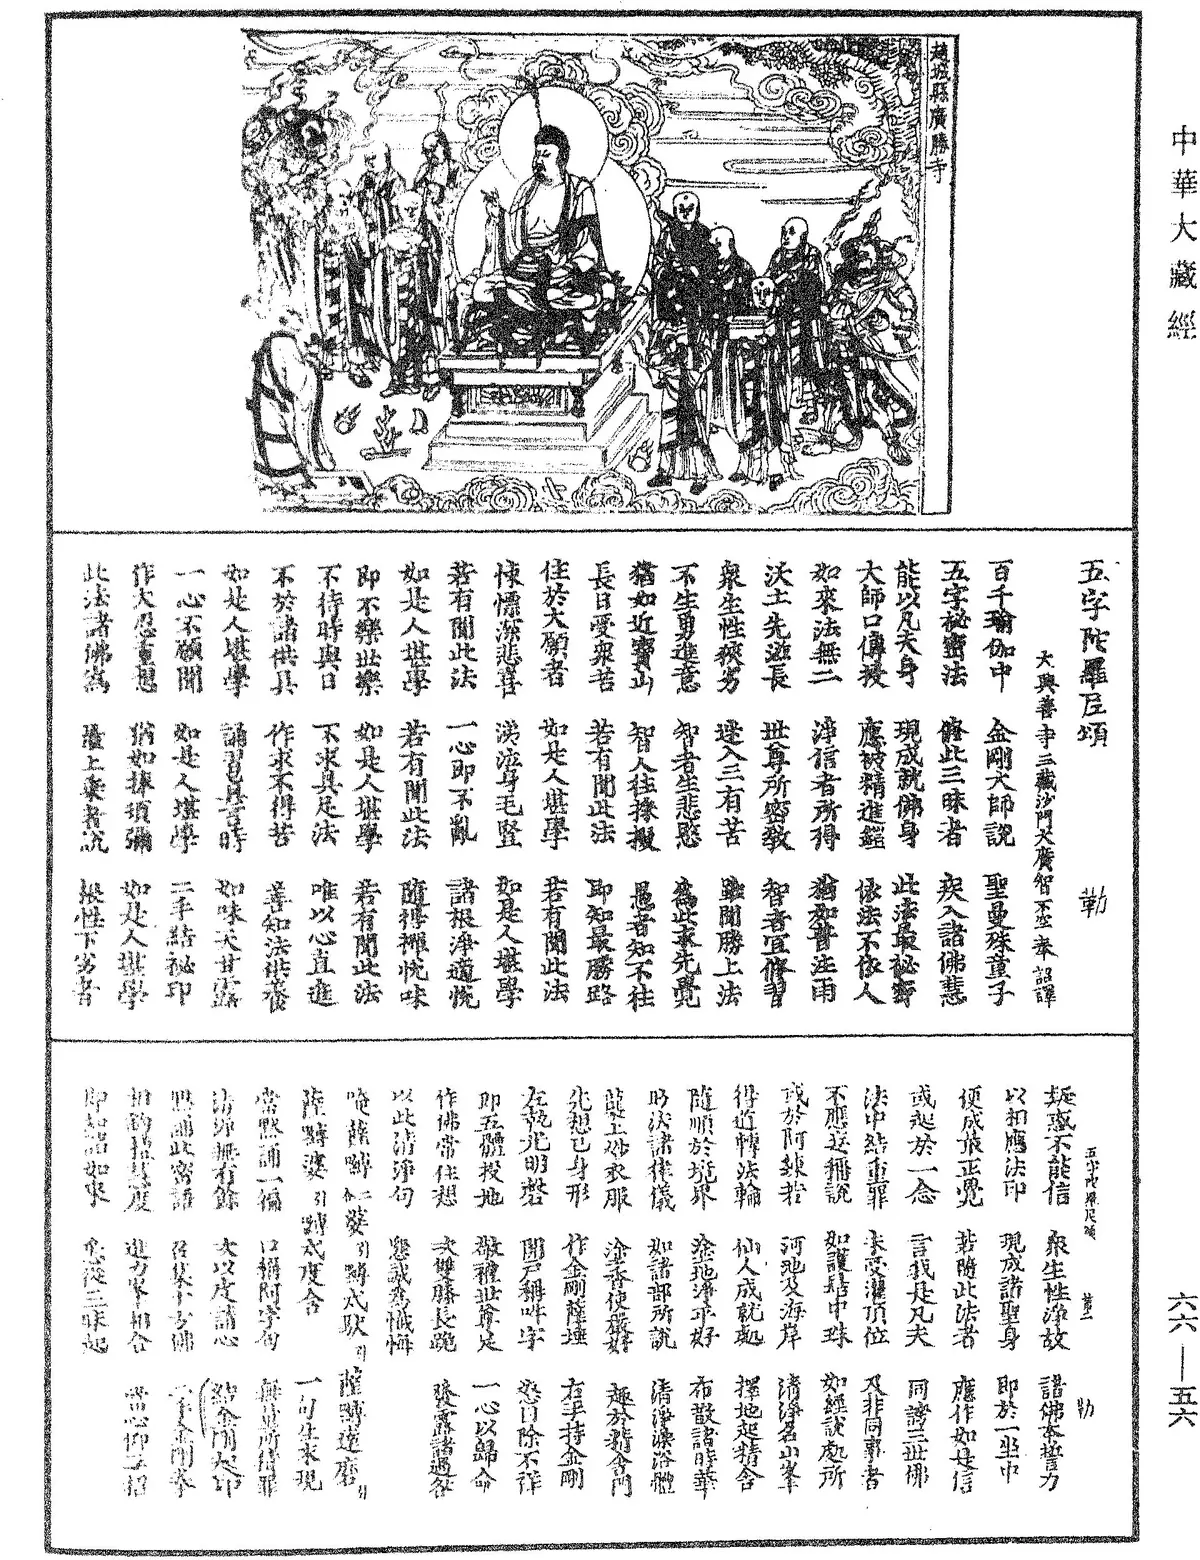 中華大藏經
趙城縣廣勝寺
五字陀羅尼頌 勒
大興善寺三藏沙門大廣智不空奉 詔譯
百千瑜伽中 金剛大師說 聖曼殊童子
五字祕密法 脩此三昧者 疾入諸佛慧
能以凡夫身 現成就佛身 此法最祕密
大師口傳授 應被精進鎧 依法不依人
如來法無二 淨信者所得 猶如普注雨
沃土先滋長 世尊所密教 智者宜修習
衆生性狹劣 迷入三有苦 雖聞勝上法
不生勇進意 智者生悲愍 為此求先覺
猶如近寶山 智人往採掇 愚者知不往
長日受衆苦 若有聞此法 即知最勝路
住於大願者 如是人堪學 若有聞此法
悚慄深悲喜 涕泣身毛豎 如是人堪學
若有聞此法 一心即不亂 諸根淨適悅
如是人堪學 若有聞此法 隨得禪悅味
即不樂世樂 如是人堪學 若有聞此法
不待時與日 不求具足法 唯以心直進
不於諸供具 作求不得苦 善知法供養
如是人堪學 誦習真言時 如味天甘露
一心不願聞 如是人堪學 二手結祕印
作大忍重想 猶如捧須彌 如是人堪學
此法諸佛為 最上乘者說 根性下劣者
五字陀羅尼頌 勒
疑惑不能信 衆生性淨故 諸佛本誓力
以相應法印 現成諸聖身 即於一坐中
便成最正覺 若隨此法者 應作如是信
或起於一念 言我是凡夫 同謗三世佛
法中結重罪 未受灌頂位 及非同事者
不應妄稱說 如護髻中珠 如經說處所
或於阿練若 河池及海岸 清淨名山峯
得道轉法輪 仙人成就處 擇地起精舍
隨順於境界 塗地淨平好 布散諸時華
明決諸律儀 如諸部所說 清淨澡浴體
薩上妙衣服 塗香使嚴好 趣於精舍門
先想己身形 作金剛薩埵 右手持金剛
左執光明磬 開戶稱吽字 怒目除不祥
即五體投地 敬禮世尊足 一心以歸命
作佛常住想 次雙膝長跪 發露諸過咎
以此清淨句 懇誠為懺悔
常默誦一徧 口稱阿字句 無量所積罪
清淨無有餘 次以度請心 結金剛起印
默誦此密語 召集十方佛 二手金剛拳
檀慧度 進力峯相合 當心仰三招
即起諸如來 悉從三昧起
六六—五六